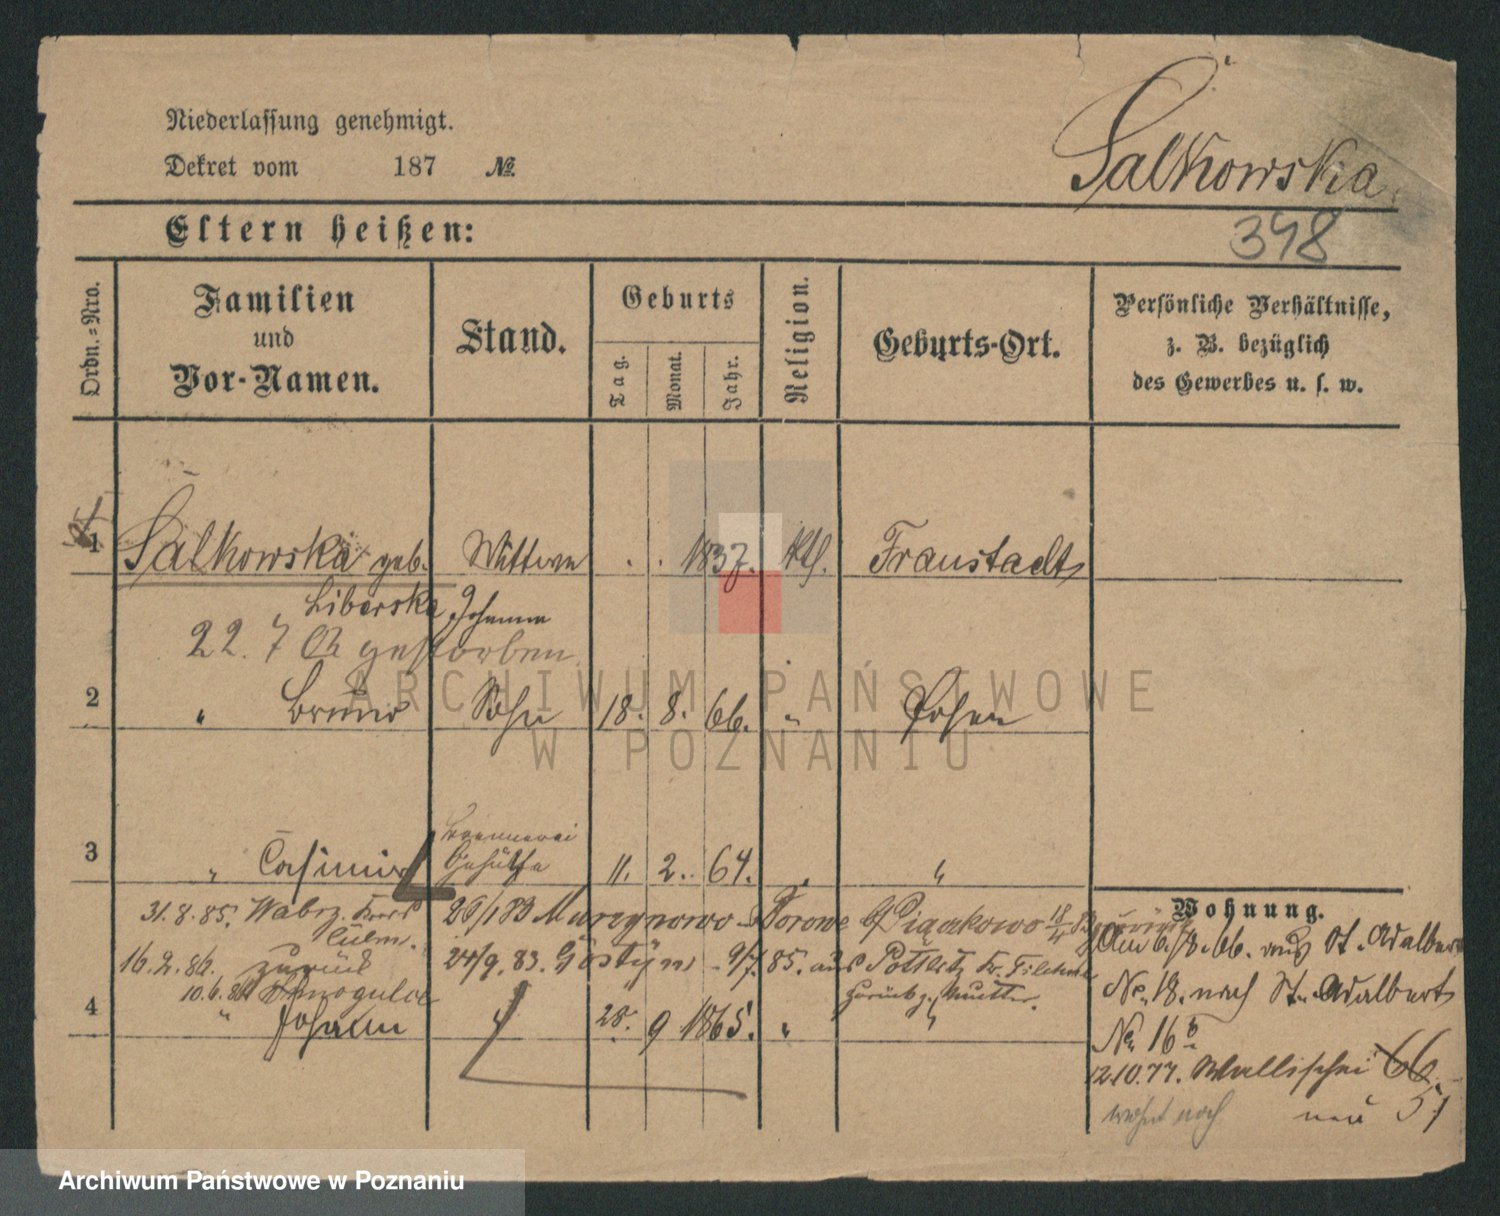 Niederlassung genehmigt.
Dekret vom 187 №
Salkowska.
348
Eltern heißen:
Ordn.=Nro.
Familien
und
Vor-Namen.
Stand.
Geburts
Tag.
Monat.
Jahr.
Religion.
Geburts-Ort.
Persönliche Verhältnisse,
z. B. bezüglich
des Gewerbes u. s. w.
1 Salkowska geb. Wittwe . . 1837. kth. Fraustadt
Liberska, Johanna
22. 7 gestorben
2 " Bruno Sohn 18. 8. 66. " Posen
Brennerei
3 " Casimir Gehülfe 11. 2. 64. "
31.8.85. Wabrz. 26/1 83 Murzynowo Borowe Piąckowo 18/4
Culm.
16.2.86. zurück 24/9. 83. Gostyn - 9/7. 85. aus Kr. Filehne
10.6.86 zurück z. Mutter.
4 " Johann " 25. 9 1865. " "
Wohnung.
Am 6./8. 66. aus St. Adalbert
No. 18. nach St. Adalbert
No. 16 b
12.10.77. Wallischei 66.
wohnt noch neu 51
ARCHIWUM PAŃSTWOWE
W POZNANIU
Archiwum Państwowe w Poznaniu